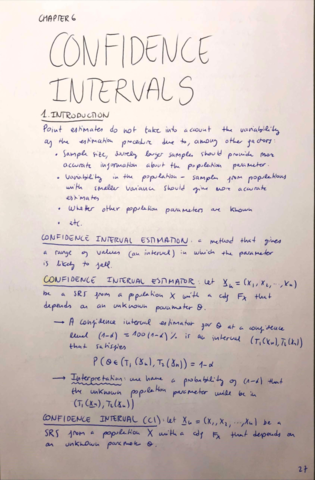 CHAPTER 6
CONFIDENCE
INTERVALS
1. INTRODUCTION
Point estimates do not take into account the variability
of the estimation procedure due to, among other factors:
• Sample size, surely larger samples should provide more
accurate information about the population parameter.
• Variability in the population - samples from populations
with smaller variance should give more accurate
estimates
• Whether other population parameters are known
• etc.
CONFIDENCE INTERVAL ESTIMATION: a method that gives
a range of values (an interval) in which the parameter
is likely to fall.
CONFIDENCE INTERVAL ESTIMATOR: Let X_n = (X_1, X_2, ..., X_n)
be a SRS from a population X with a cdf F_X that
depends on an unknown parameter θ.
→ A confidence interval estimator for θ at a confidence
level (1-α) = 100(1-α)% is an interval (T_1(X_n), T_2(X_n))
that satisfies
P(θ ∈ (T_1(X_n), T_2(X_n))) = 1-α
→ Interpretation: we have a probability of (1-α) that
the unknown population parameter will be in
(T_1(X_n), T_2(X_n))
CONFIDENCE INTERVAL (CI): Let X_n = (X_1, X_2, ..., X_n) be a
SRS from a population X with a cdf F_X that depends on
an unknown parameter θ.
27